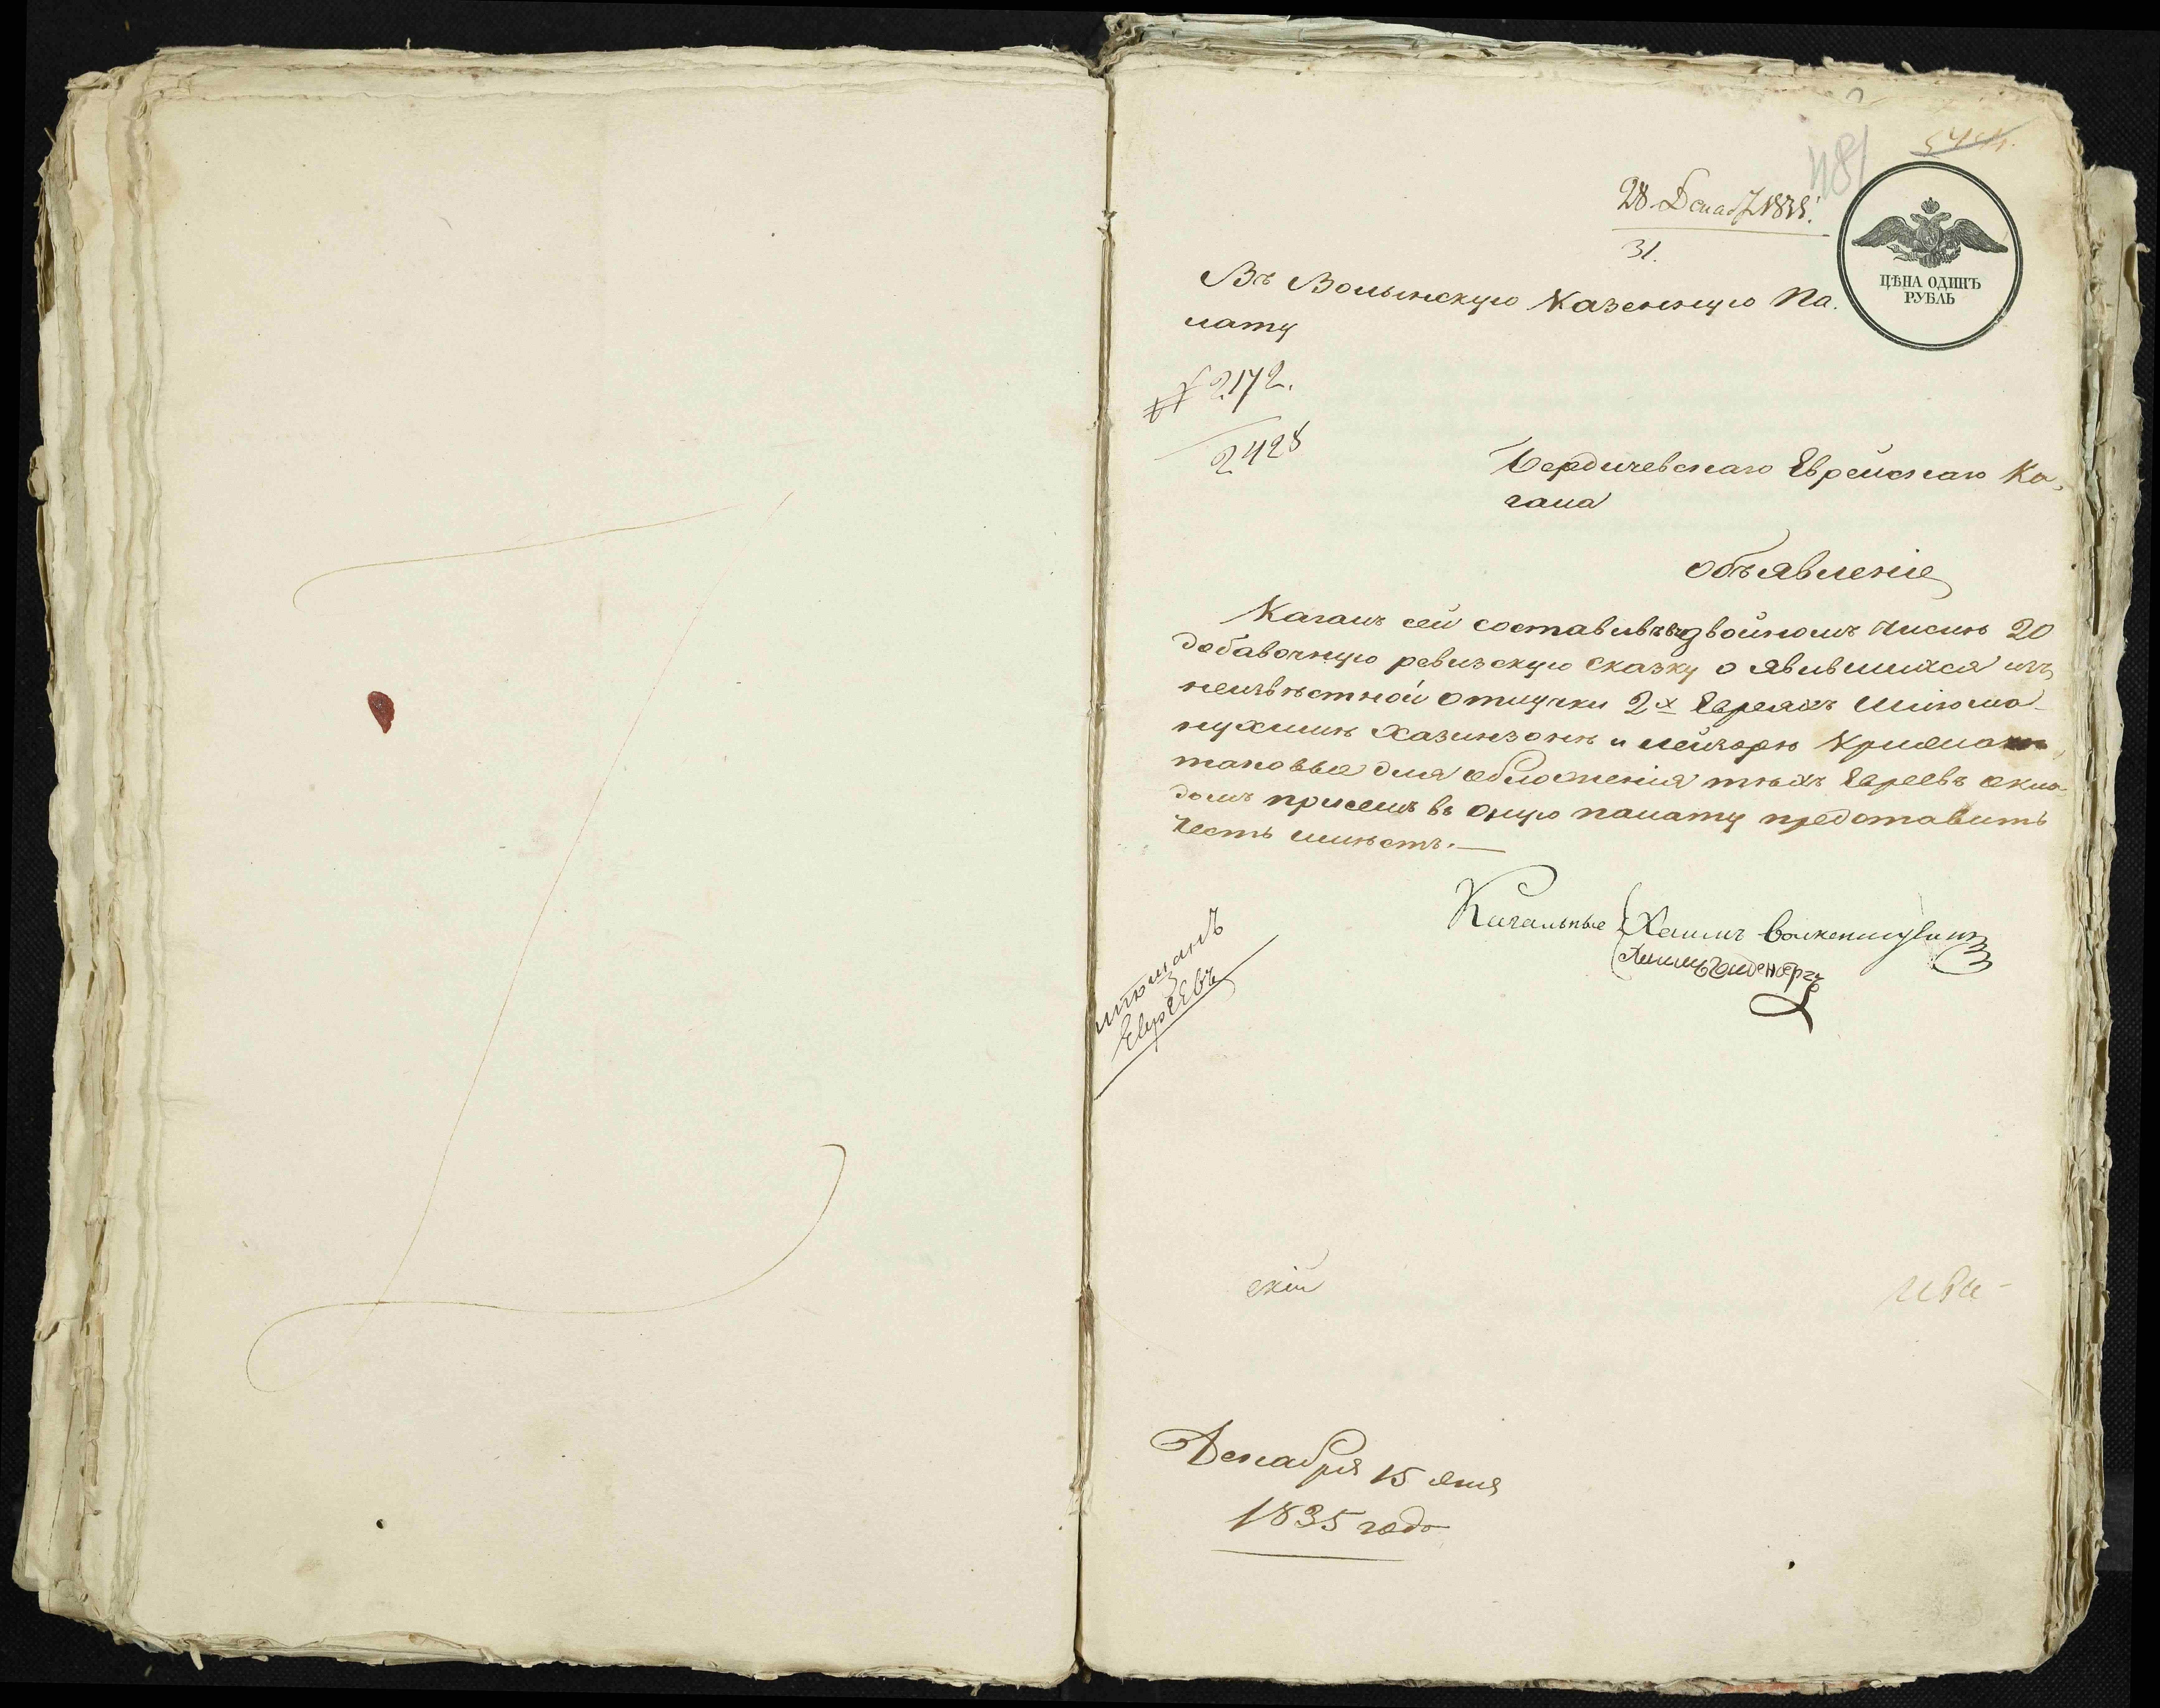 481
28 Декаб 1835.
31.
ЦѢНА ОДИНЪ
РУБЛЬ
Въ Волынскую Казенную Па-
лату
№ 2172.
2428
Бердичевскаго Еврейскаго Ка-
гала
объявленіе
Кагалъ сей составивъ въ двойномъ числѣ 20
добавочную ревизскую сказку о явившихся изъ
неизвѣстной отлучки 2х Евреяхъ Шлюмо-
нухимѣ Хазинзонѣ и Лейзорѣ
таковые для обложенія тѣхъ Евреевъ окла-
домъ присемъ въ оную палату представить
честь имѣетъ.
Кагальные Хаимъ
мѣщанъ
Евреевъ
скій
Декабря 15 дня
1835 года